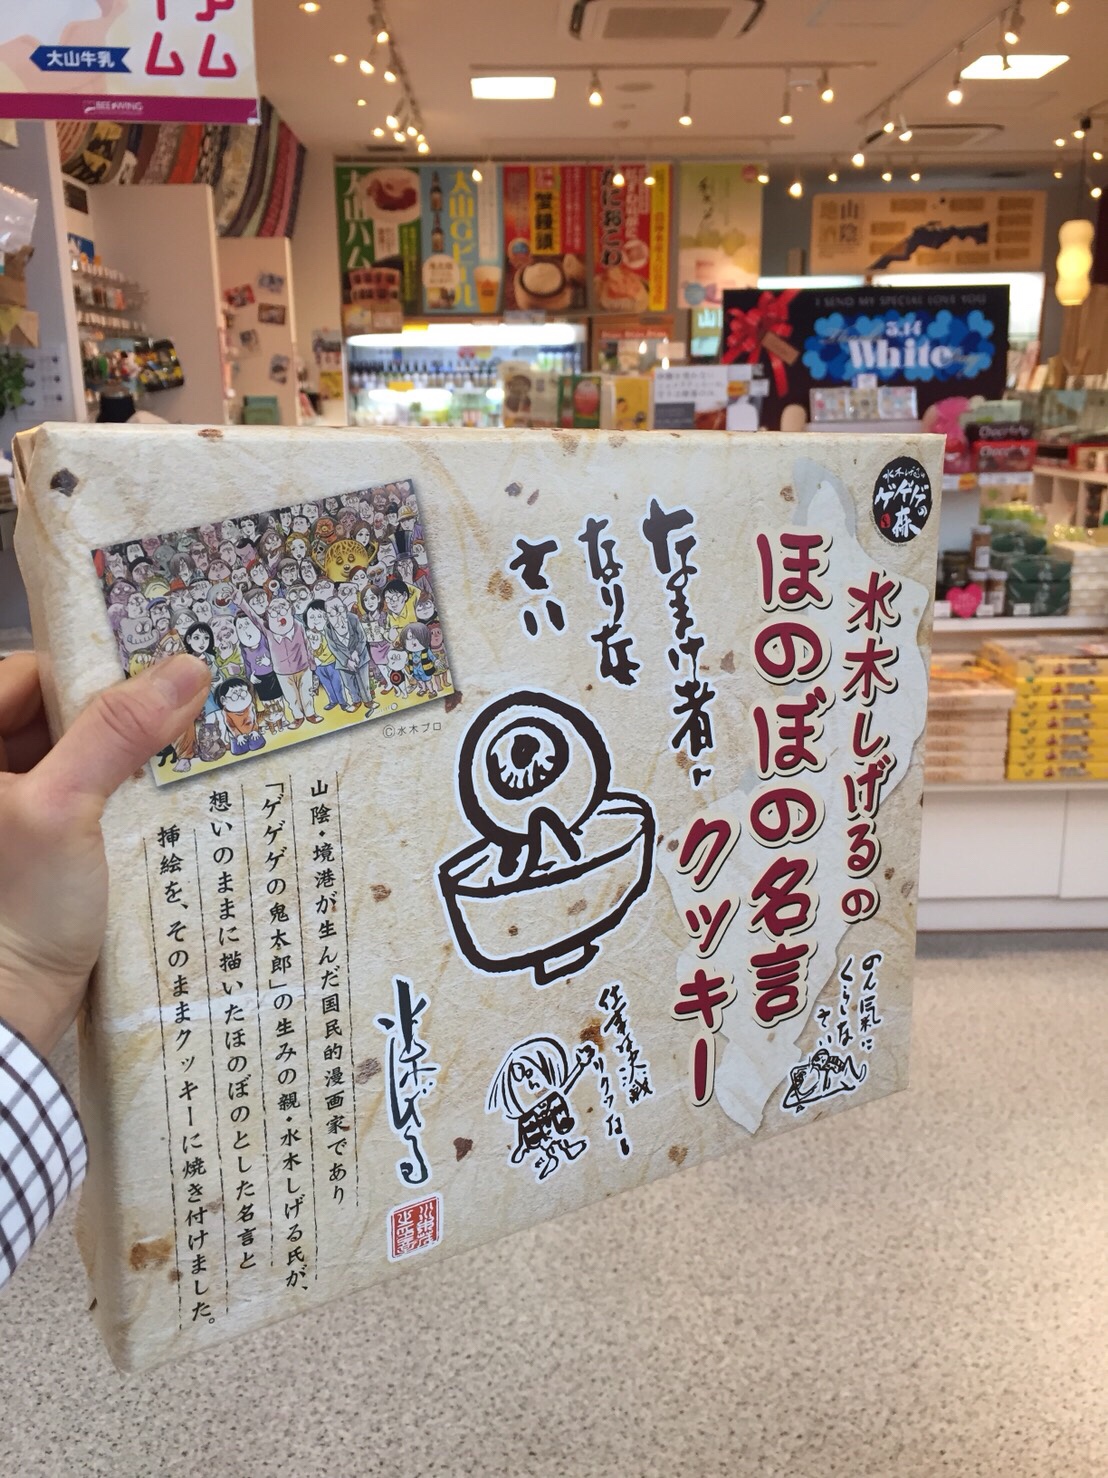 大山牛乳
BEE WING
大山ハム
大山Gビール
かにおこわ
山陰
I SEND MY SPECIAL LOVE YOU
3.14
White
水木しげるの
ゲゲゲの森
水木しげるの
ほのぼの名言
クッキー
なまけ者に
なりな
さい
のん気に
くらしな
さい
仕事は決戦
リクツなし
水木しげる
©水木プロ
山陰・境港が生んだ国民的漫画家であり
「ゲゲゲの鬼太郎」の生みの親・水木しげる氏が、
想いのままに描いたほのぼのとした名言と
挿絵を、そのままクッキーに焼き付けました。